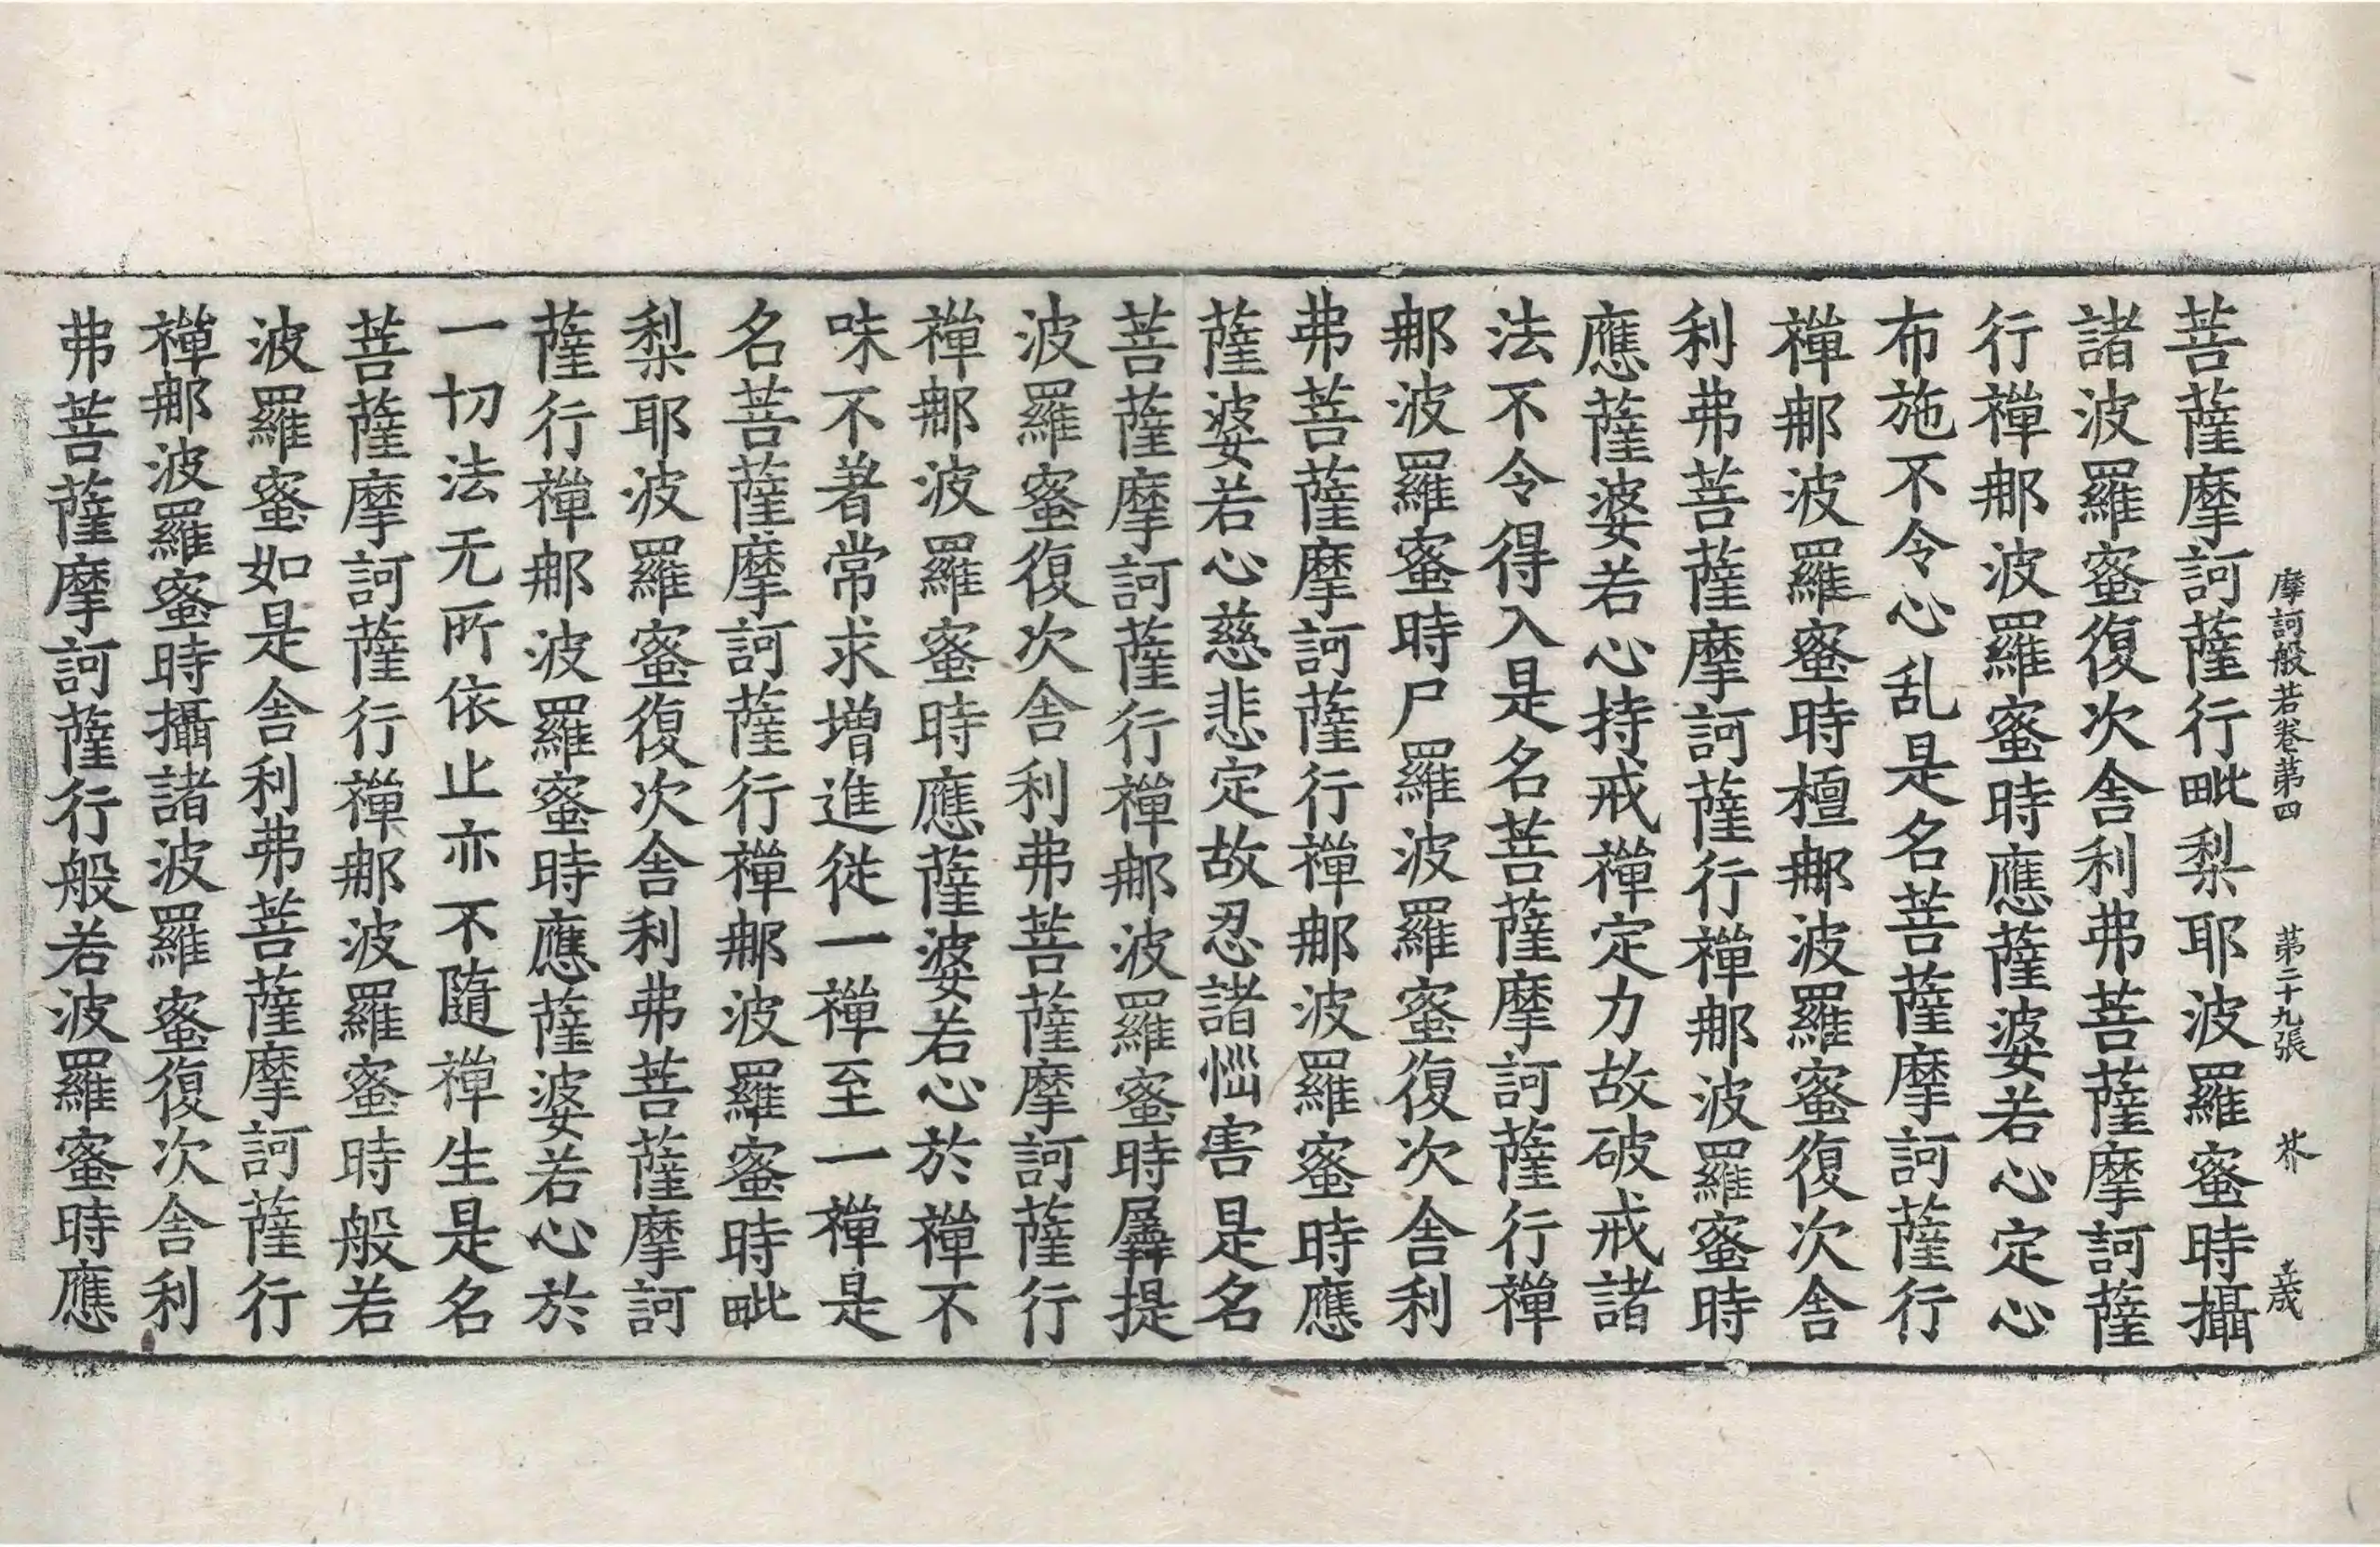 摩訶般若卷第四 第二十九張 芥
菩薩摩訶薩行毗梨耶波羅蜜時攝
諸波羅蜜復次舍利弗菩薩摩訶薩
行禪那波羅蜜時應薩婆若心定心
布施不令心乱是名菩薩摩訶薩行
禪那波羅蜜時檀那波羅蜜復次舍
利弗菩薩摩訶薩行禪那波羅蜜時
應薩婆若心持戒禪定力故破戒諸
法不令得入是名菩薩摩訶薩行禪
那波羅蜜時尸羅波羅蜜復次舍利
弗菩薩摩訶薩行禪那波羅蜜時應
薩婆若心慈悲定故忍諸惱害是名
菩薩摩訶薩行禪那波羅蜜時羼提
波羅蜜復次舍利弗菩薩摩訶薩行
禪那波羅蜜時應薩婆若心於禪不
味不著常求增進從一禪至一禪是
名菩薩摩訶薩行禪那波羅蜜時毗
梨耶波羅蜜復次舍利弗菩薩摩訶
薩行禪那波羅蜜時應薩婆若心於
一切法无所依止亦不隨禪生是名
菩薩摩訶薩行禪那波羅蜜時般若
波羅蜜如是舍利弗菩薩摩訶薩行
禪那波羅蜜時攝諸波羅蜜復次舍利
弗菩薩摩訶薩行般若波羅蜜時應